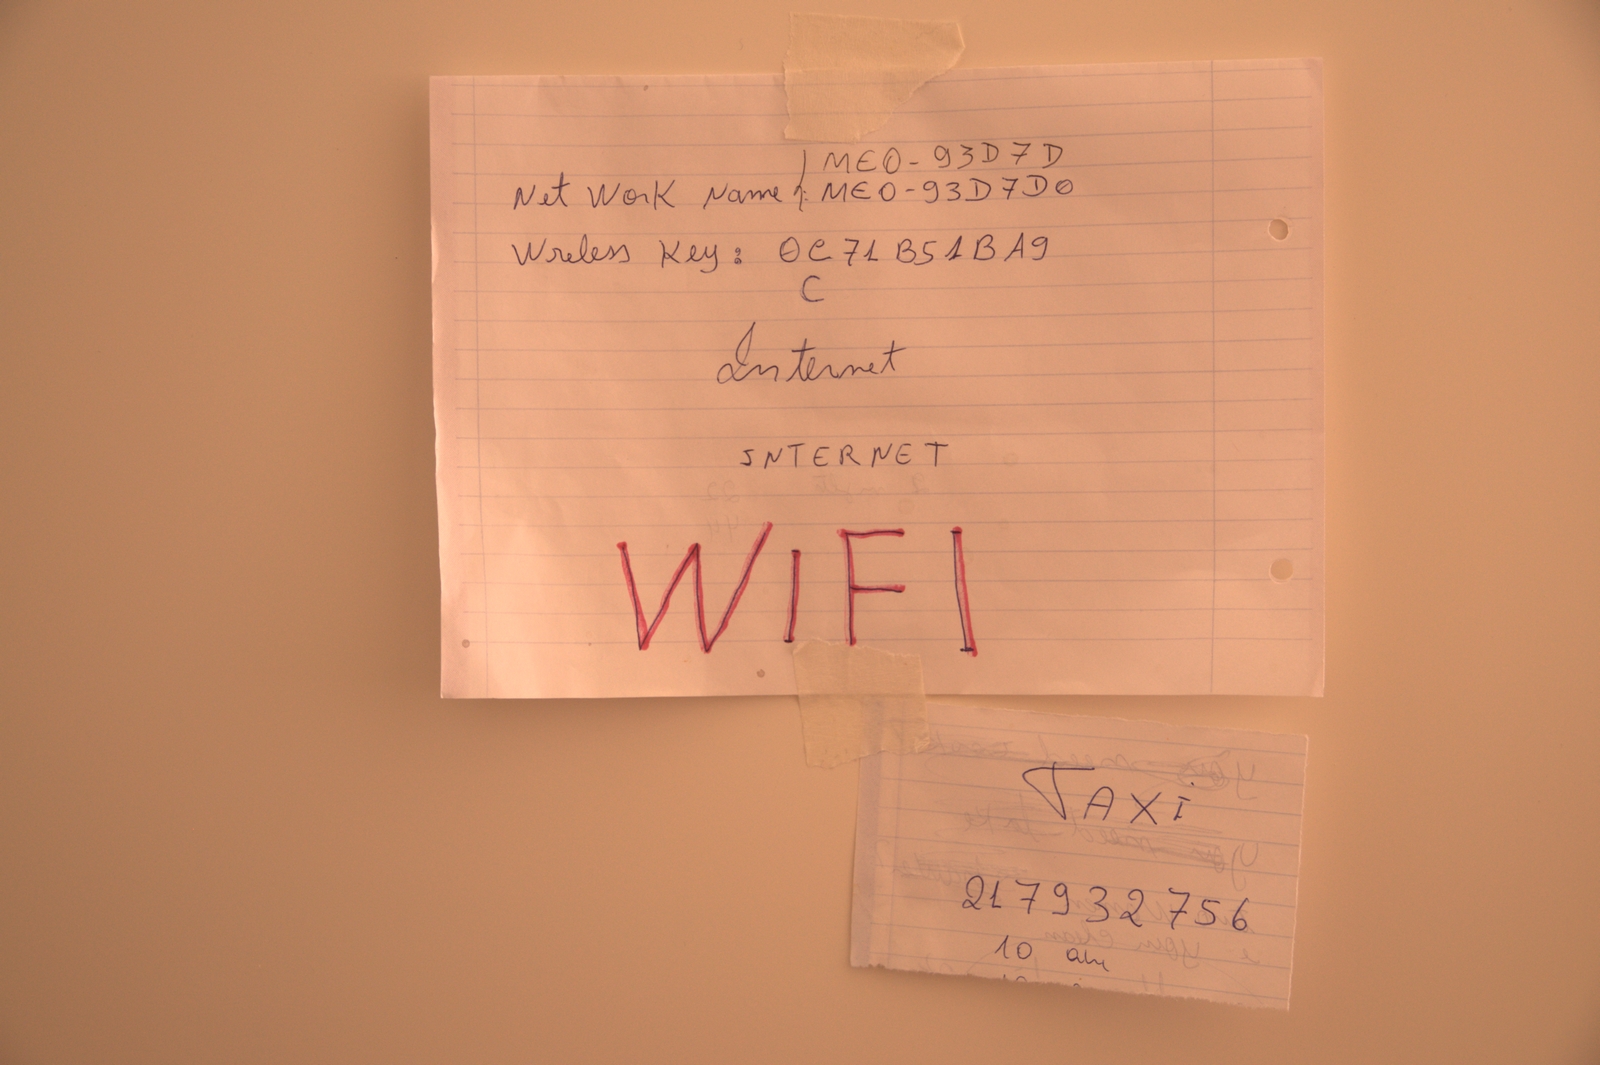 MEO-93D7D
Net Work Name: MEO-93D7D0
Wreless Key: 0C71B51BA9
C
Internet
INTERNET
WiFI
TAXi
217932756
10 am